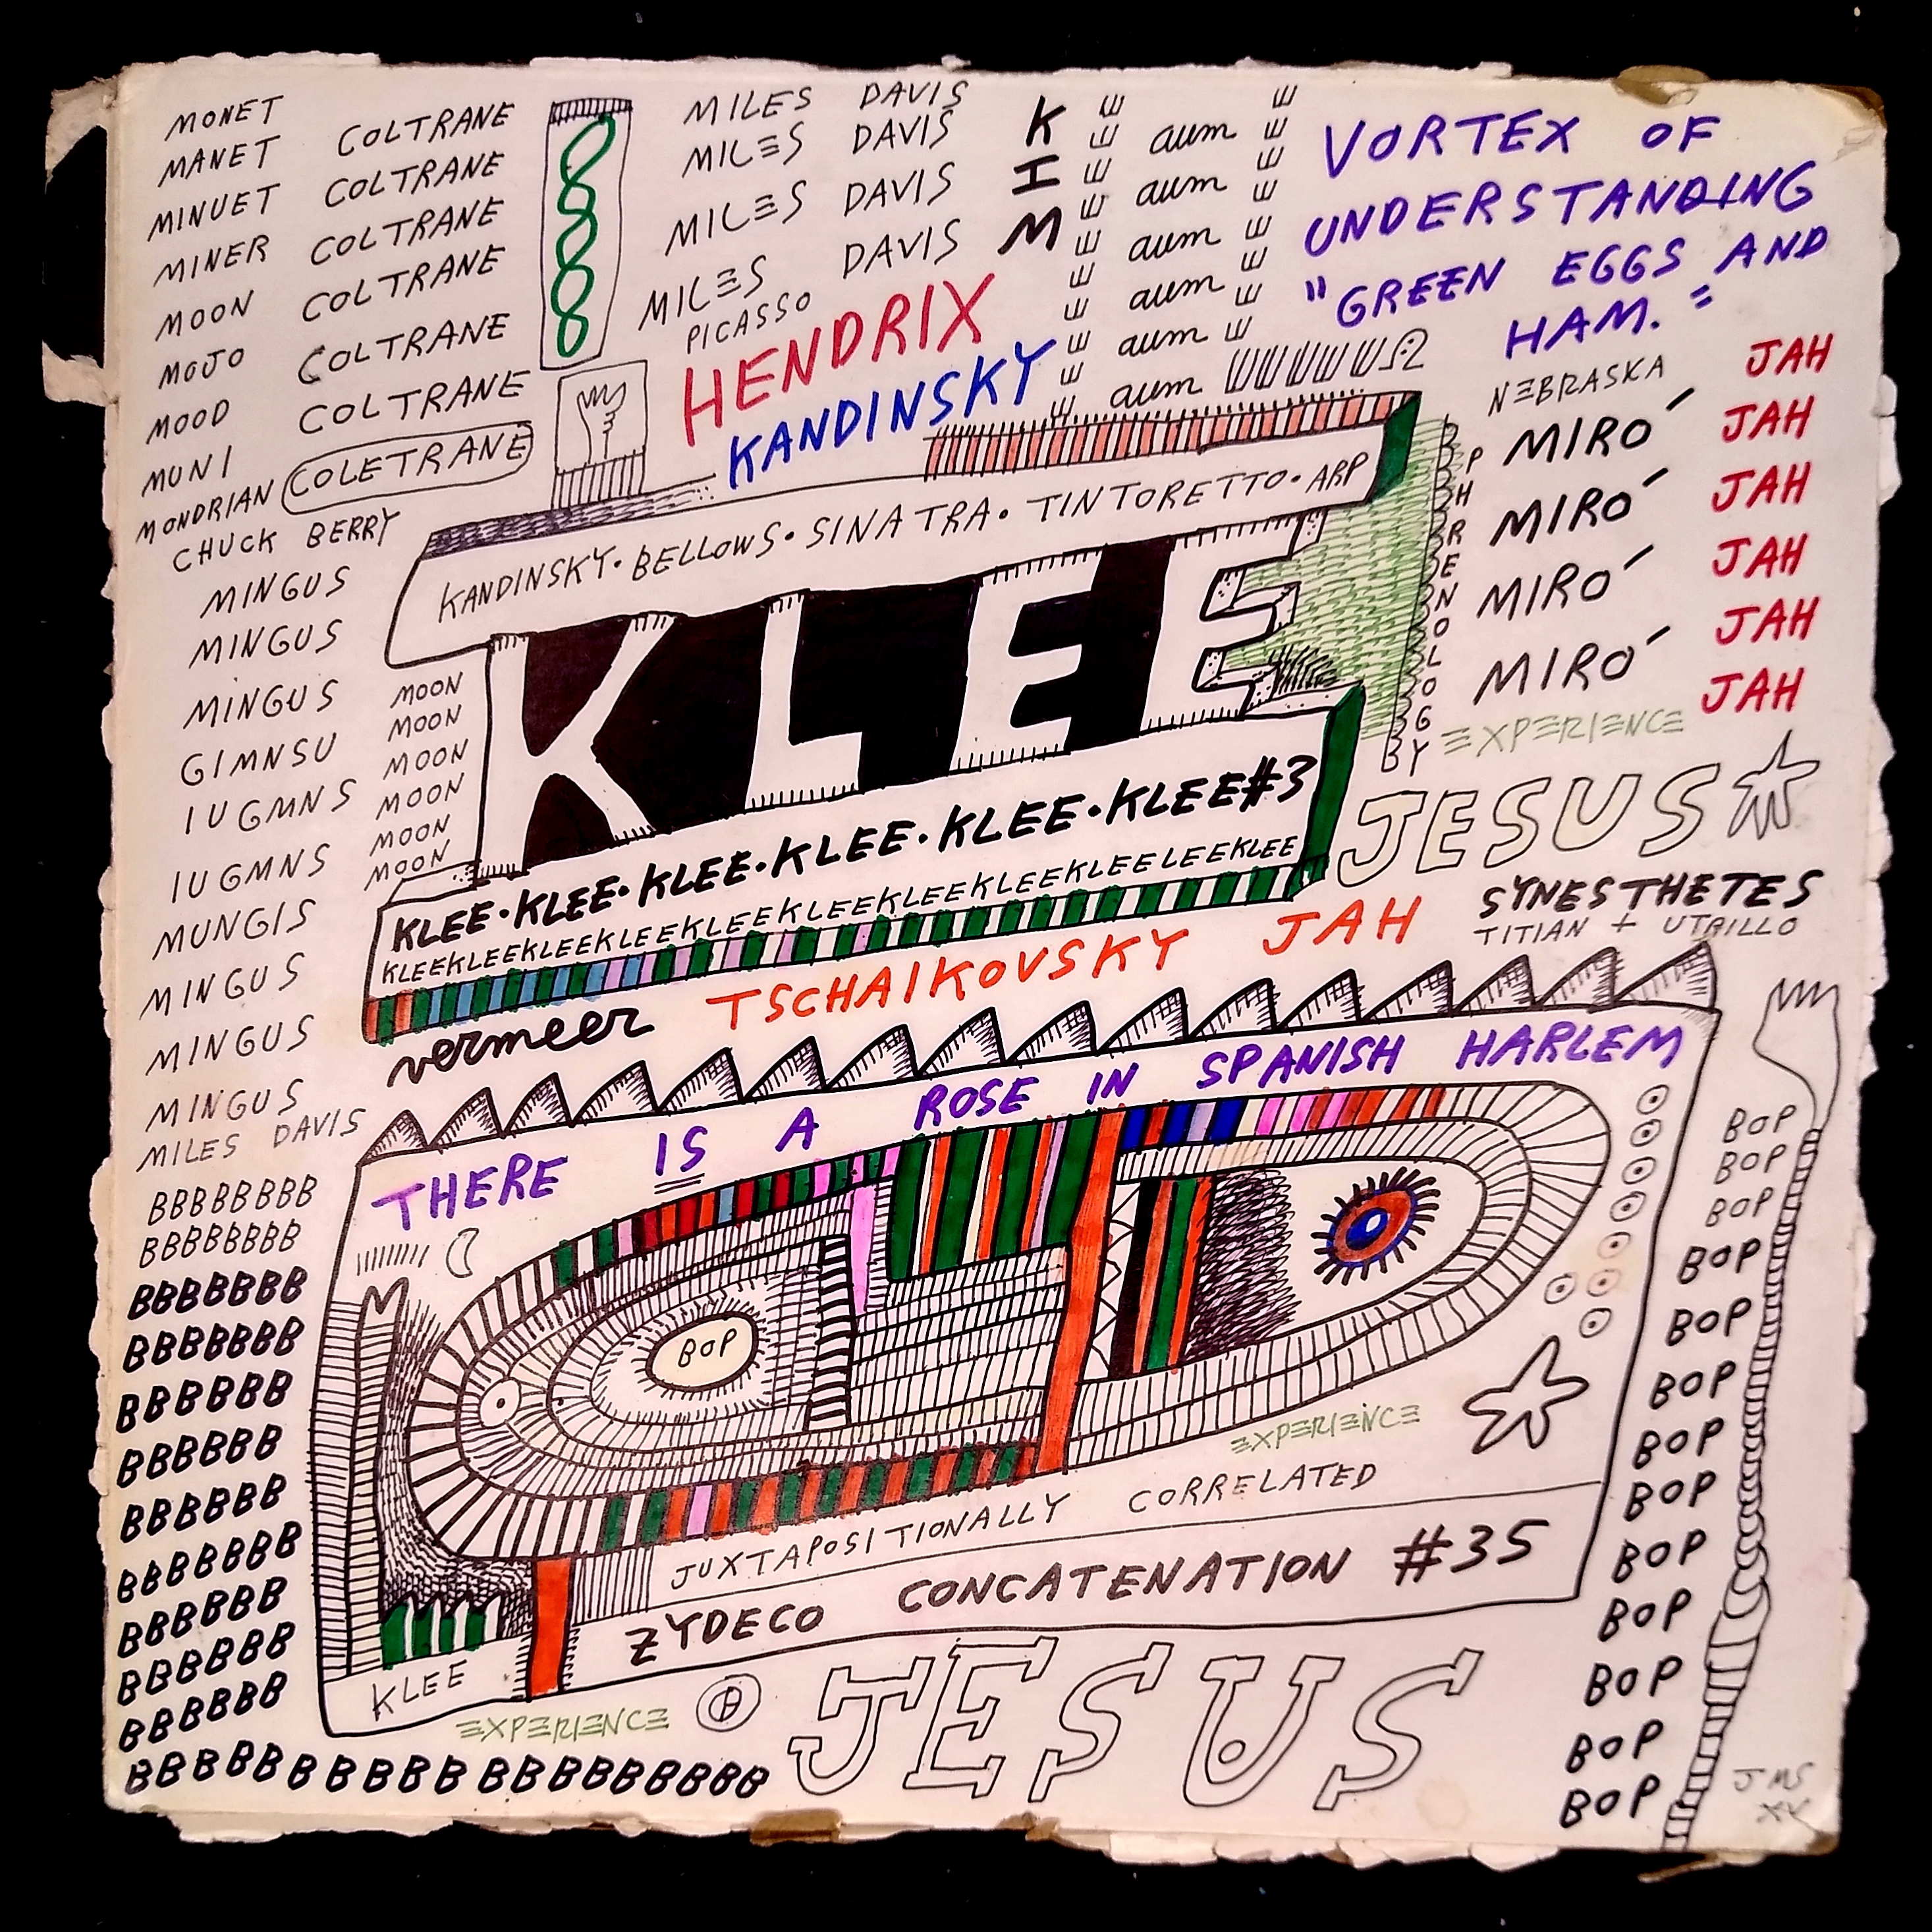 MONET
MANET
MINUET
MINER
MOON
MOJO
MOOD
MUNI
MONDRIAN
COLTRANE
COLTRANE
COLTRANE
COLTRANE
COLTRANE
COLTRANE
COLETRANE
CHUCK BERRY
MINGUS
MINGUS
MINGUS
GIMNSU
IUGMNS
IUGMNS
MUNGIS
MINGUS
MINGUS
MINGUS
MILES DAVIS
MOON
MOON
MOON
MOON
MOON
MOON
MILES DAVIS
MILES DAVIS
MILES DAVIS
MILES DAVIS
PICASSO
HENDRIX
KANDINSKY
KIM
aum
aum
aum
aum
aum
aum
VORTEX OF
UNDERSTANDING
"GREEN EGGS AND
HAM."
NEBRASKA
MIRO´
MIRO´
MIRO´
MIRO´
JAH
JAH
JAH
JAH
JAH
JAH
PHRENOLOGY
BY
EXPERIENCE
JESUS
SYNESTHETES
TITIAN + UTRILLO
KANDINSKY·BELLOWS·SINATRA·TINTORETTO·ARP
KLEE
KLEE·KLEE·KLEE·KLEE·KLEE·KLEE#3
KLEEKLEEKLEEKLEEKLEEKLEEKLEEKLEEKLEELEEKLEE
vermeer
TSCHAIKOVSKY JAH
THERE IS A ROSE IN SPANISH HARLEM
BOP
EXPERIENCE
JUXTAPOSITIONALLY CORRELATED
ZYDECO CONCATENATION #35
KLEE
EXPERIENCE
JESUS
BBBBBBBB
BBBBBBBB
BBBBBBB
BBBBBBB
BBBBBB
BBBBBB
BBBBBB
BBBBBBB
BBBBBB
BBBBBB
BBBBBB
BBBBBBBBBBBBBBBBBBB
BOP
BOP
BOP
BOP
BOP
BOP
BOP
BOP
BOP
BOP
BOP
BOP
BOP
JMS
XX